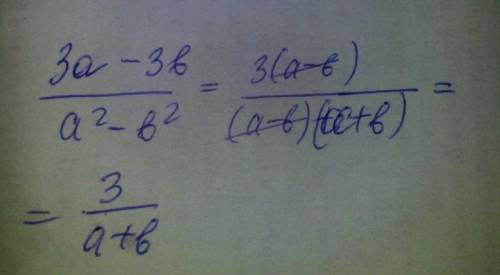 (3a - 3b)/(a² - b²) = 3(a-b)/((a-b)(a+b)) =
= 3/(a+b)